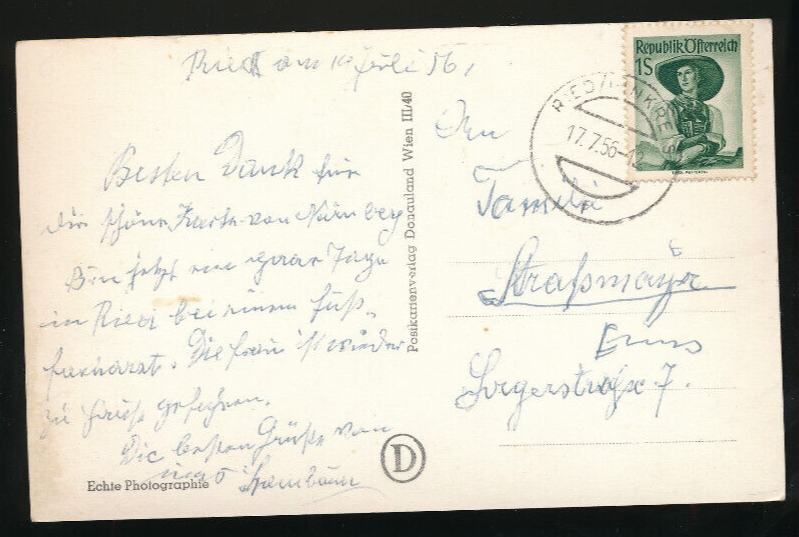 Ried am 16 Juli 56,
Besten Dank für
die schöne Karte von Nürnberg
Bin jetzt ein paar Tage
in Ried bei einem Fuß-
facharzt. Die Frau ist wieder
zu Hause gefahren.
Die besten Grüße von
Echte Photographie
D
Postkartenverlag Donauland Wien III/40
Republik Österreich
1S
RIED / INNKREIS
17.7.56
An
Familie
Straßmayr
Enns
Lagerstraße 7.